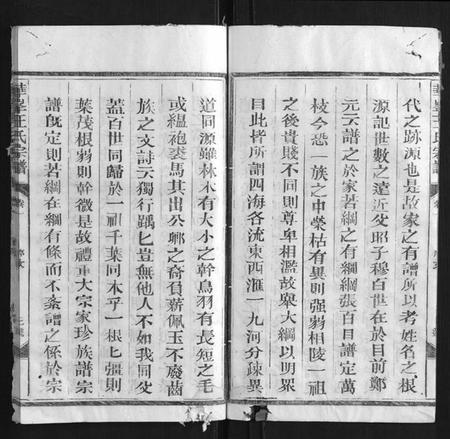 代之跡源也是故家之有譜所以考姓名之根
源記世數之遠近父昭子穆百世在於目前鄭
元云譜之於家若綱之有綱綱張百目譜定萬
枝今恐一族之中榮枯有異則强弱相陵一祖
之後貴賤不同則尊卑相濫故舉大綱以明眾
目此皆所謂四海各流東西滙一九河分疎異
道同源雖林木有大小之幹鳥羽有長短之毛
或縕袍裘馬其出公卿之裔負薪佩玉不廢齒
族之文詩云獨行踽匕豈無他人不如我同父
蓋百世同歸於一祖千葉同本乎一根匕彊則
葉茂根弱則幹微是故禮重大宗家珍族譜宗
譜既定則若綱在綱有條而不紊譜之係於宗
華峯王氏宗譜